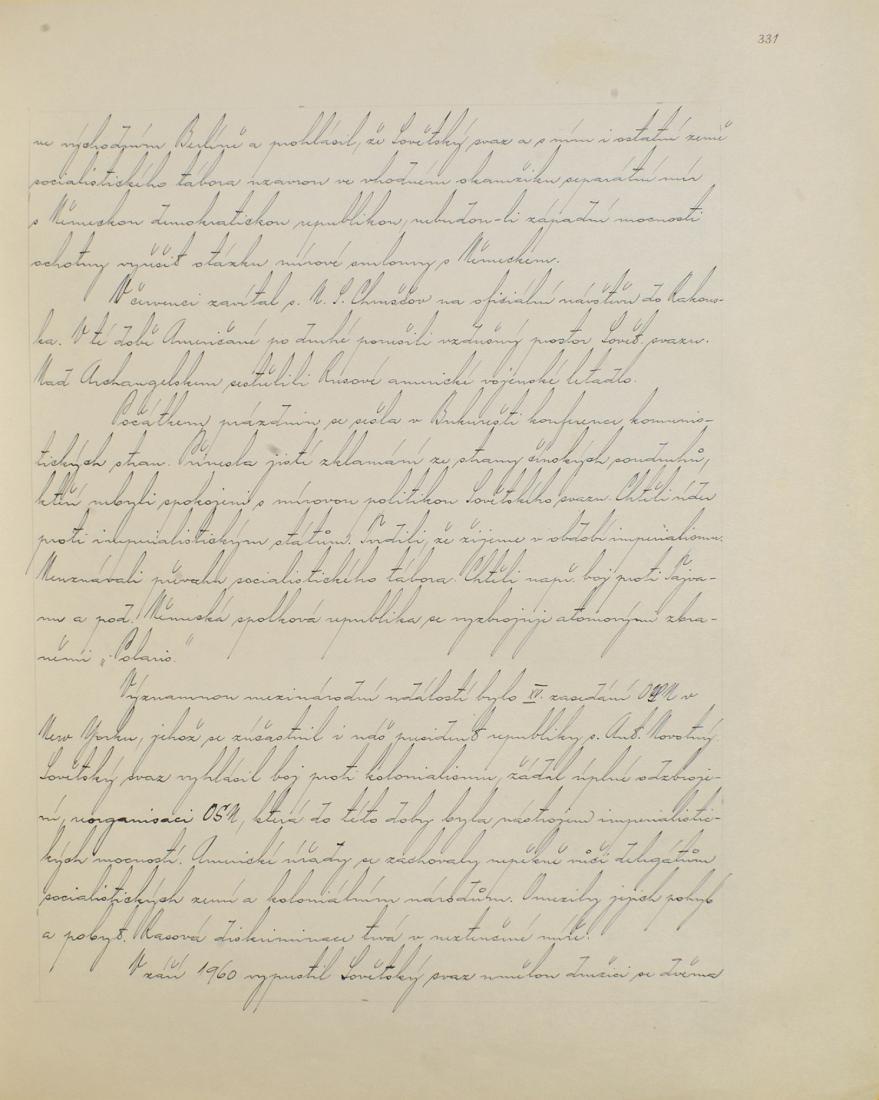 331
ve východním Berlíně a prohlásil, že Sovětský svaz a s ním i ostatní země
socialistického tábora uzavrou ve vhodném okamžiku separátní mír
s Německou demokratickou republikou, nebudou-li západní mocnosti
ochotny vyřešit otázku mírové smlouvy s Německem.
V červenci zavítal s. N. S. Chruščov na oficiální návštěvu do Rakous-
ka. V té době Američané po druhé porušili vzdušný prostor Sovět. svazu.
Nad Archangelskem sestřelili Rusové americké vojenské letadlo.
Počátkem prázdnin se sešla v Bukurešti konference komunis-
tických stran. Přinesla jisté zklamání ze strany čínských soudruhů,
kteří nebyli spokojeni s mírovou politikou Sovětského svazu. Chtěli úder
proti imperialistickým státům. Tvrdili, že žijeme v období imperialismu.
Neuznávali převahu socialistického tábora. Chtěli např. boj proti Tajva-
nu a pod. Německá spolková republika se vyzbrojuje atomovými zbra-
němi „Polaris."
Významnou mezinárodní událostí bylo XV. zasedání OSN v
New Yorku, jehož se zúčastnil i náš president republiky s. Ant. Novotný.
Sovětský svaz vyhlásil boj proti kolonialismu, žádal úplné odzbroje-
ní, reorganisaci OSN, která do této doby byla nástrojem imperialistic-
kých mocností. Americké úřady se zachovaly nepěkně vůči delegátům
socialistických zemí a koloniálním národům. Omezily jejich pohyb
a pobyt. Rasová diskriminace trvá v neztenčené míře.
V září 1960 vypustil Sovětský svaz umělou družici se dvěma